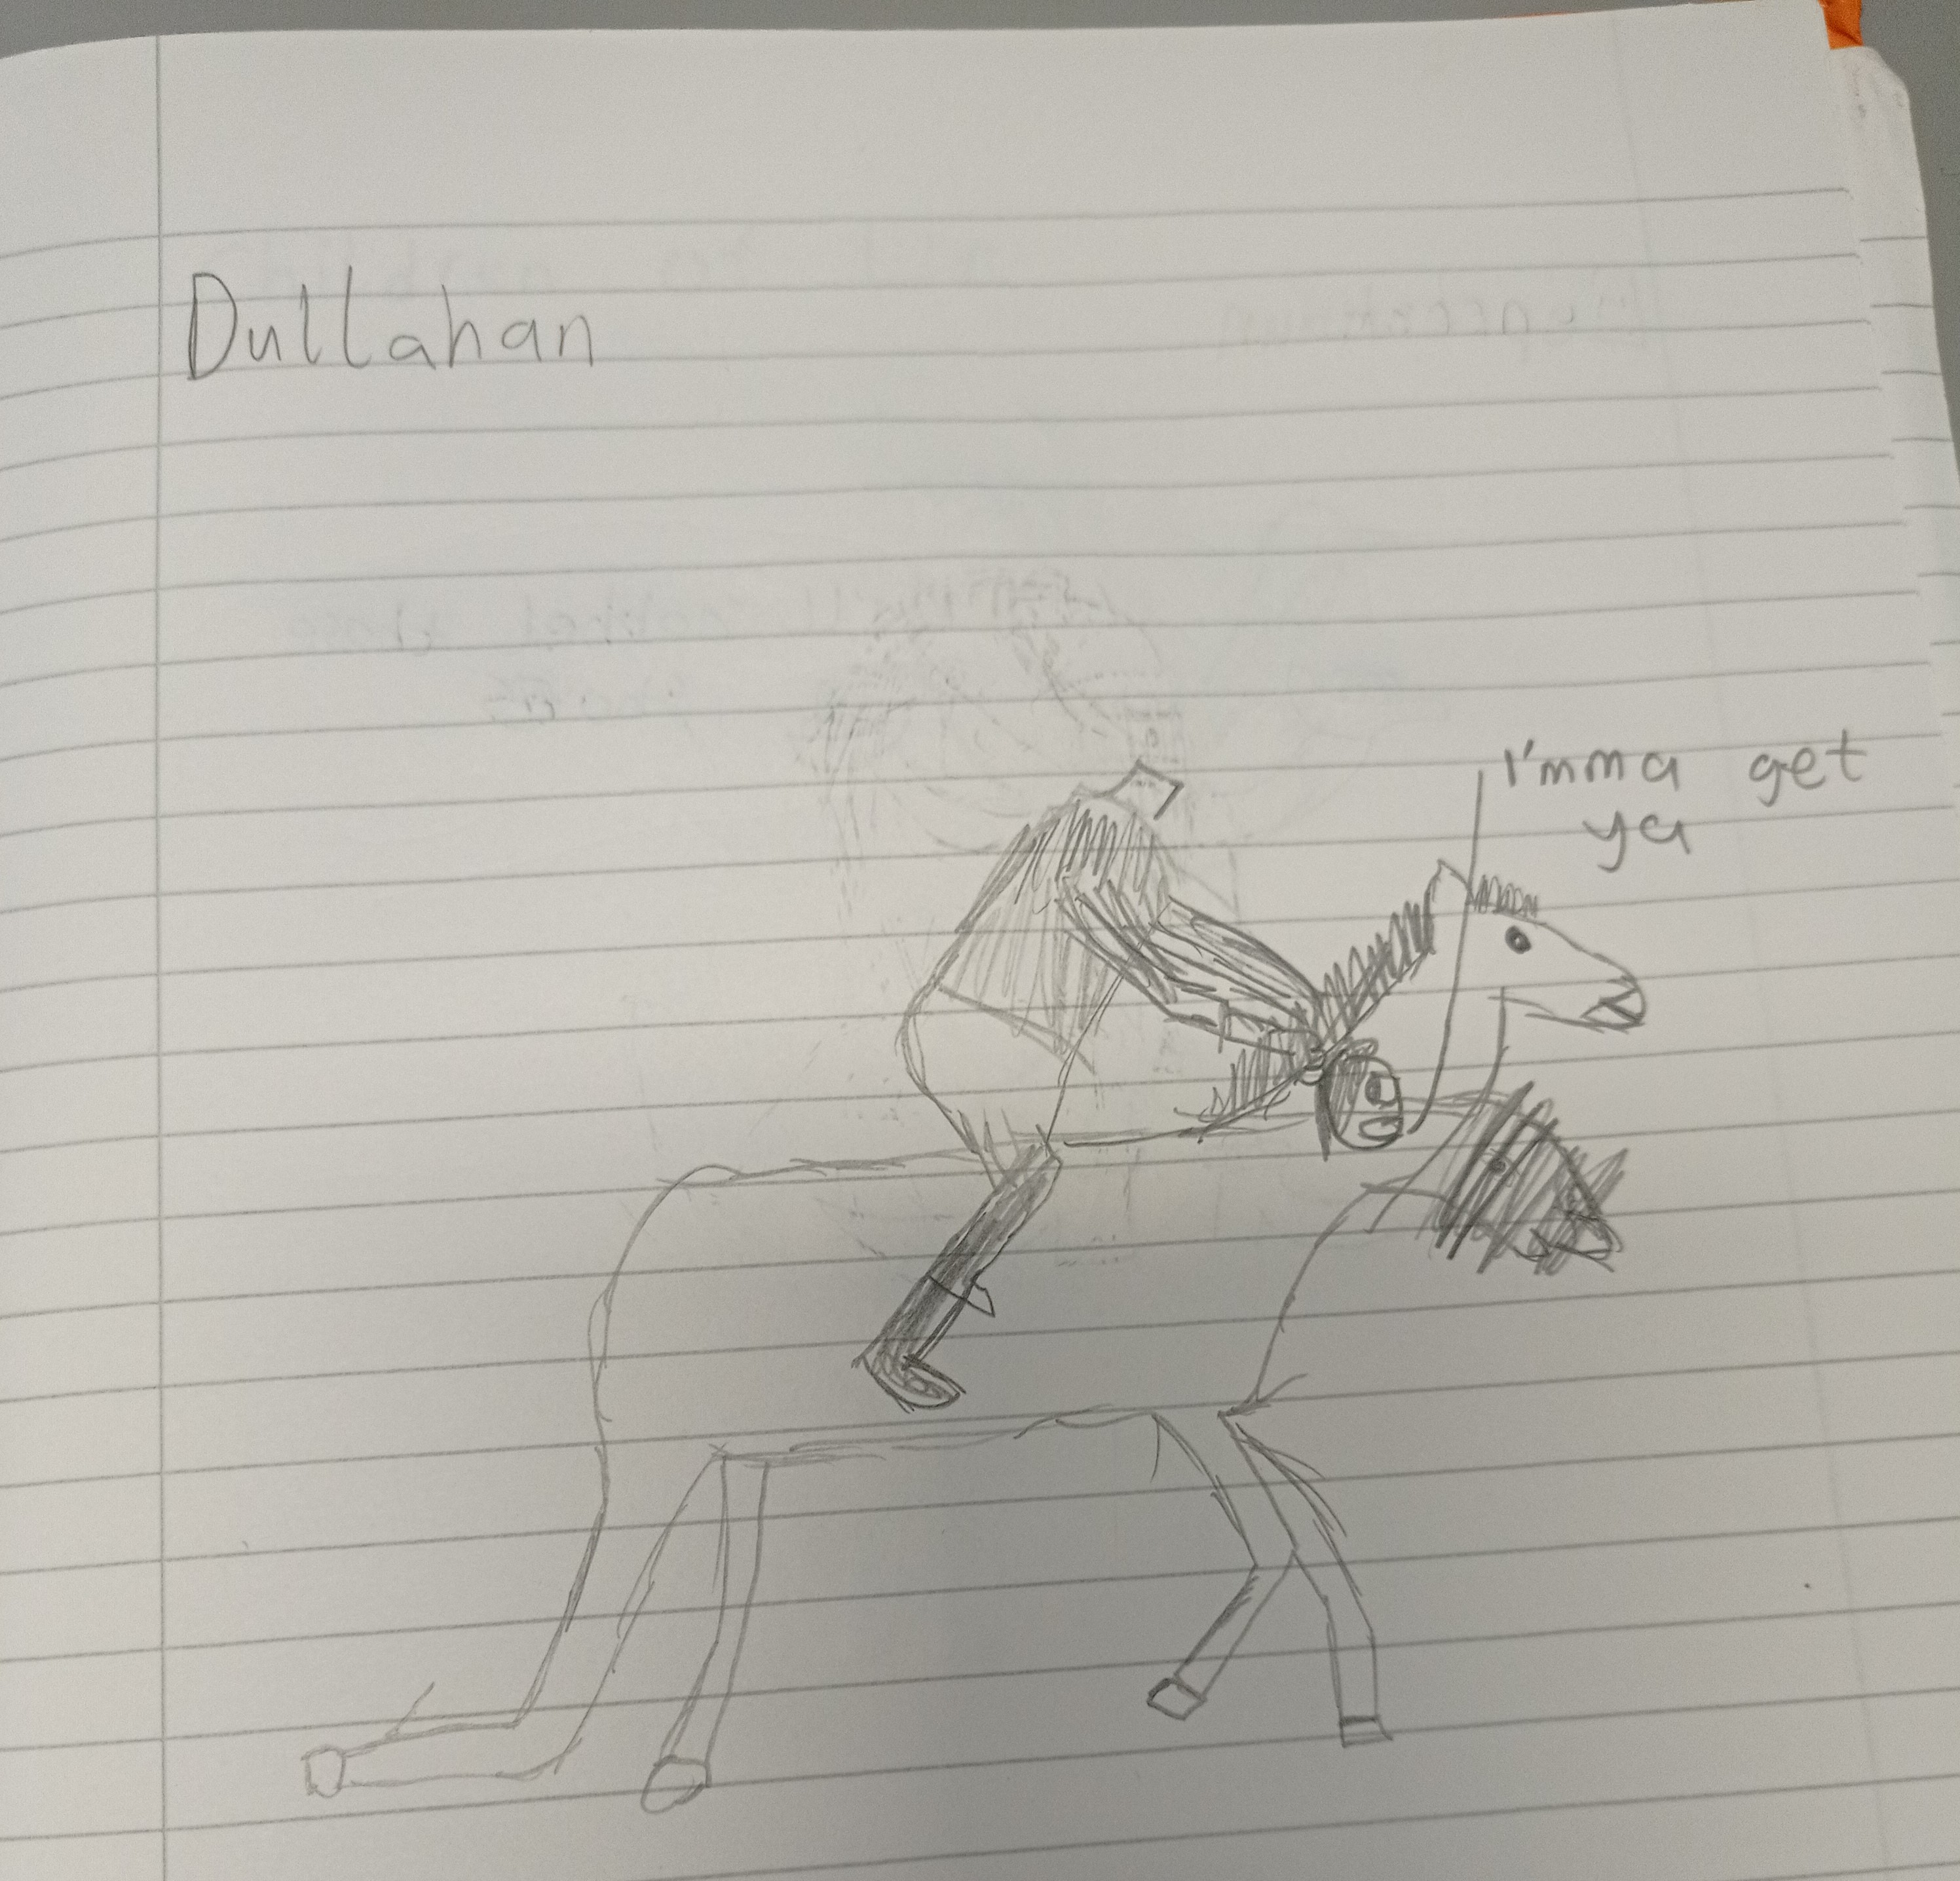 Dullahan
I'mma get
ya